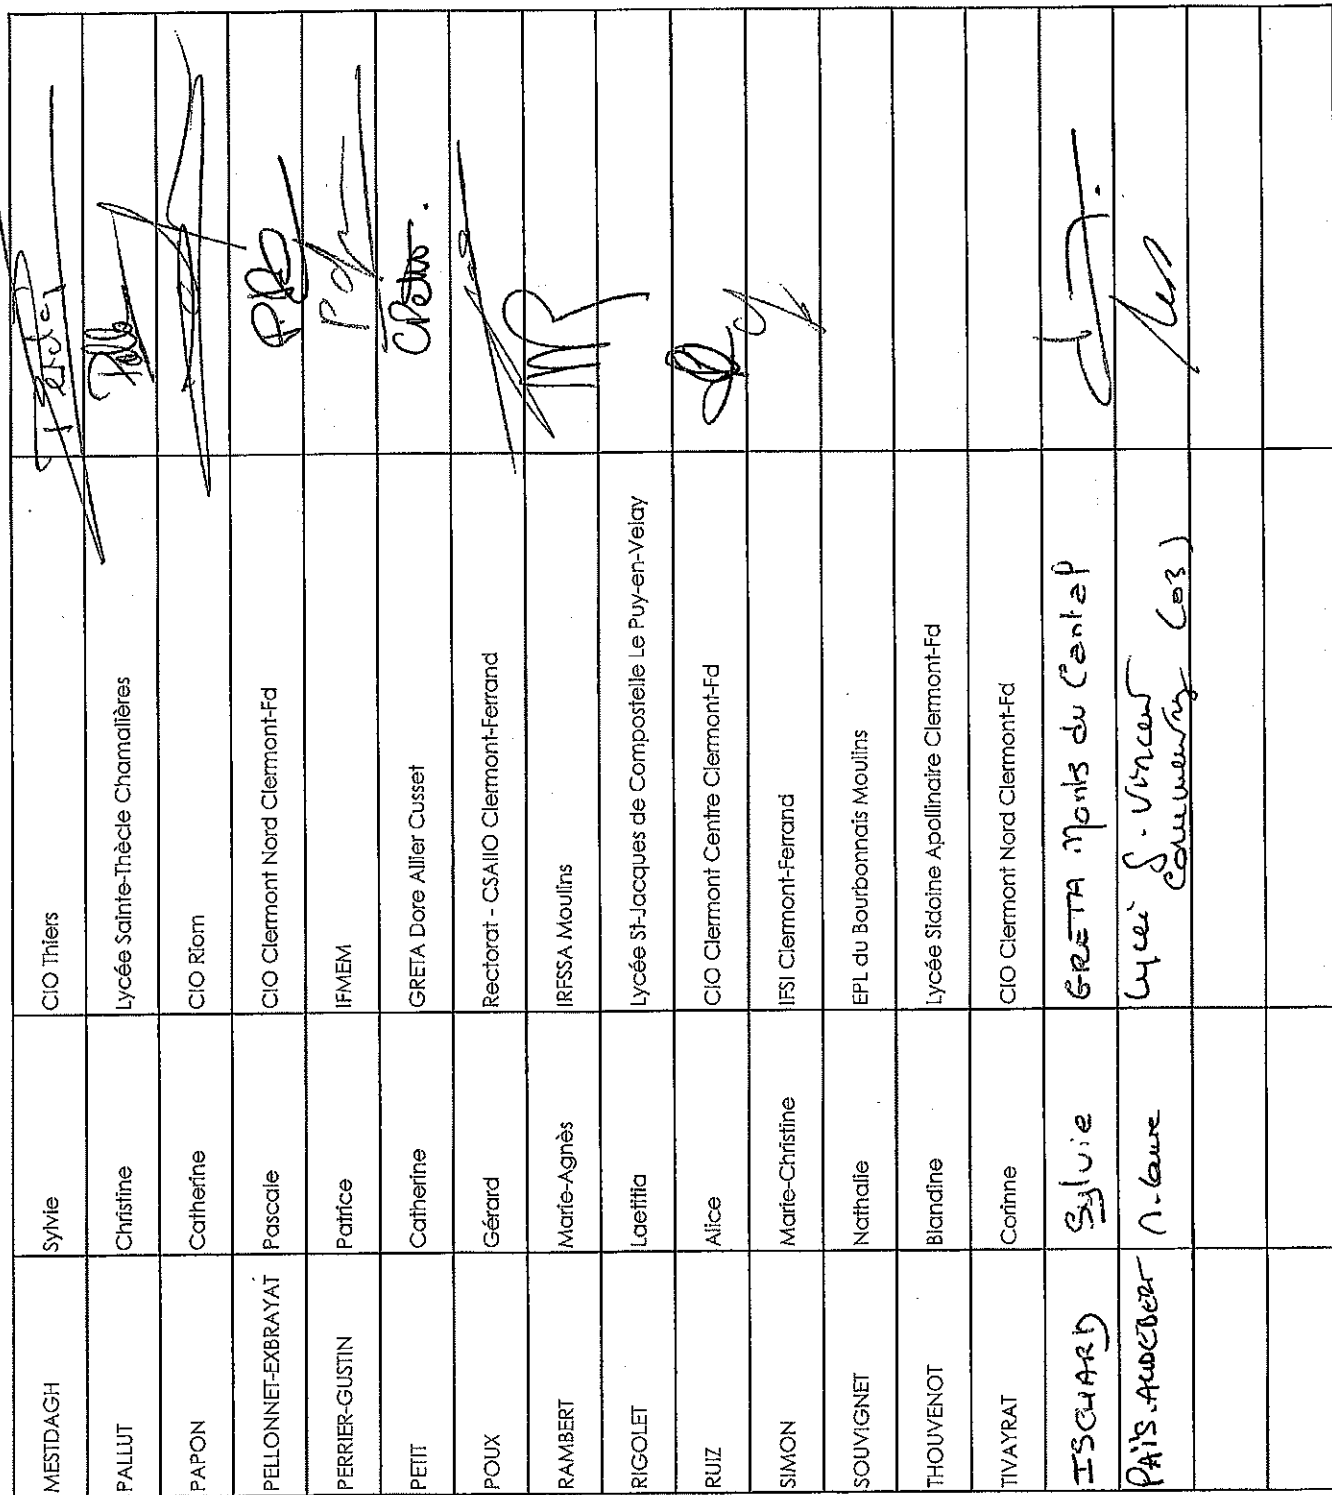 MESTDAGH Sylvie CIO Thiers
PALLUT Christine Lycée Sainte-Thècle Chamalières
PAPON Catherine CIO Riom
PELLONNET-EXBRAYAT Pascale CIO Clermont Nord Clermont-Fd
PERRIER-GUSTIN Patrice IFMEM
PETIT Catherine GRETA Dore Allier Cusset
POUX Gérard Rectorat - CSAIIO Clermont-Ferrand
RAMBERT Marie-Agnès IRFSSA Moulins
RIGOLET Laetitia Lycée St-Jacques de Compostelle Le Puy-en-Velay
RUIZ Alice CIO Clermont Centre Clermont-Fd
SIMON Marie-Christine IFSI Clermont-Ferrand
SOUVIGNET Nathalie EPL du Bourbonnais Moulins
THOUVENOT Blandine Lycée Sidoine Apollinaire Clermont-Fd
TIVAYRAT Corinne CIO Clermont Nord Clermont-Fd
ISCHARD Sylvie GRETA Monts du Cantal
PAÏS-AUDEBERT M-Laure Lycée S. Vincent
Commentry (03)